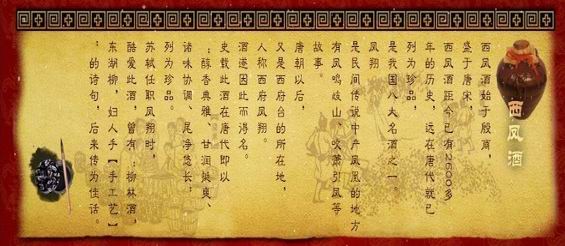 西凤酒
西凤酒始于殷商,
盛于唐宋,
西凤酒距今已有2600多
年的历史,远在唐代就已
列为珍品,
是我国八大名酒之一。
凤翔
是民间传说中产凤凰的地方
有凤鸣岐山、吹萧引凤等
故事。
唐朝以后,
又是西府台的所在地,
人称西府凤翔。
酒遂因此而得名。
史载此酒在唐代即以
:醇香典雅、甘润挺爽、
诸味协调、尾净悠长,
列为珍品。
苏轼任职凤翔时,
酷爱此酒,曾有:柳林酒,
东湖柳,妇人手【手工艺】
:的诗句,后来传为佳话。